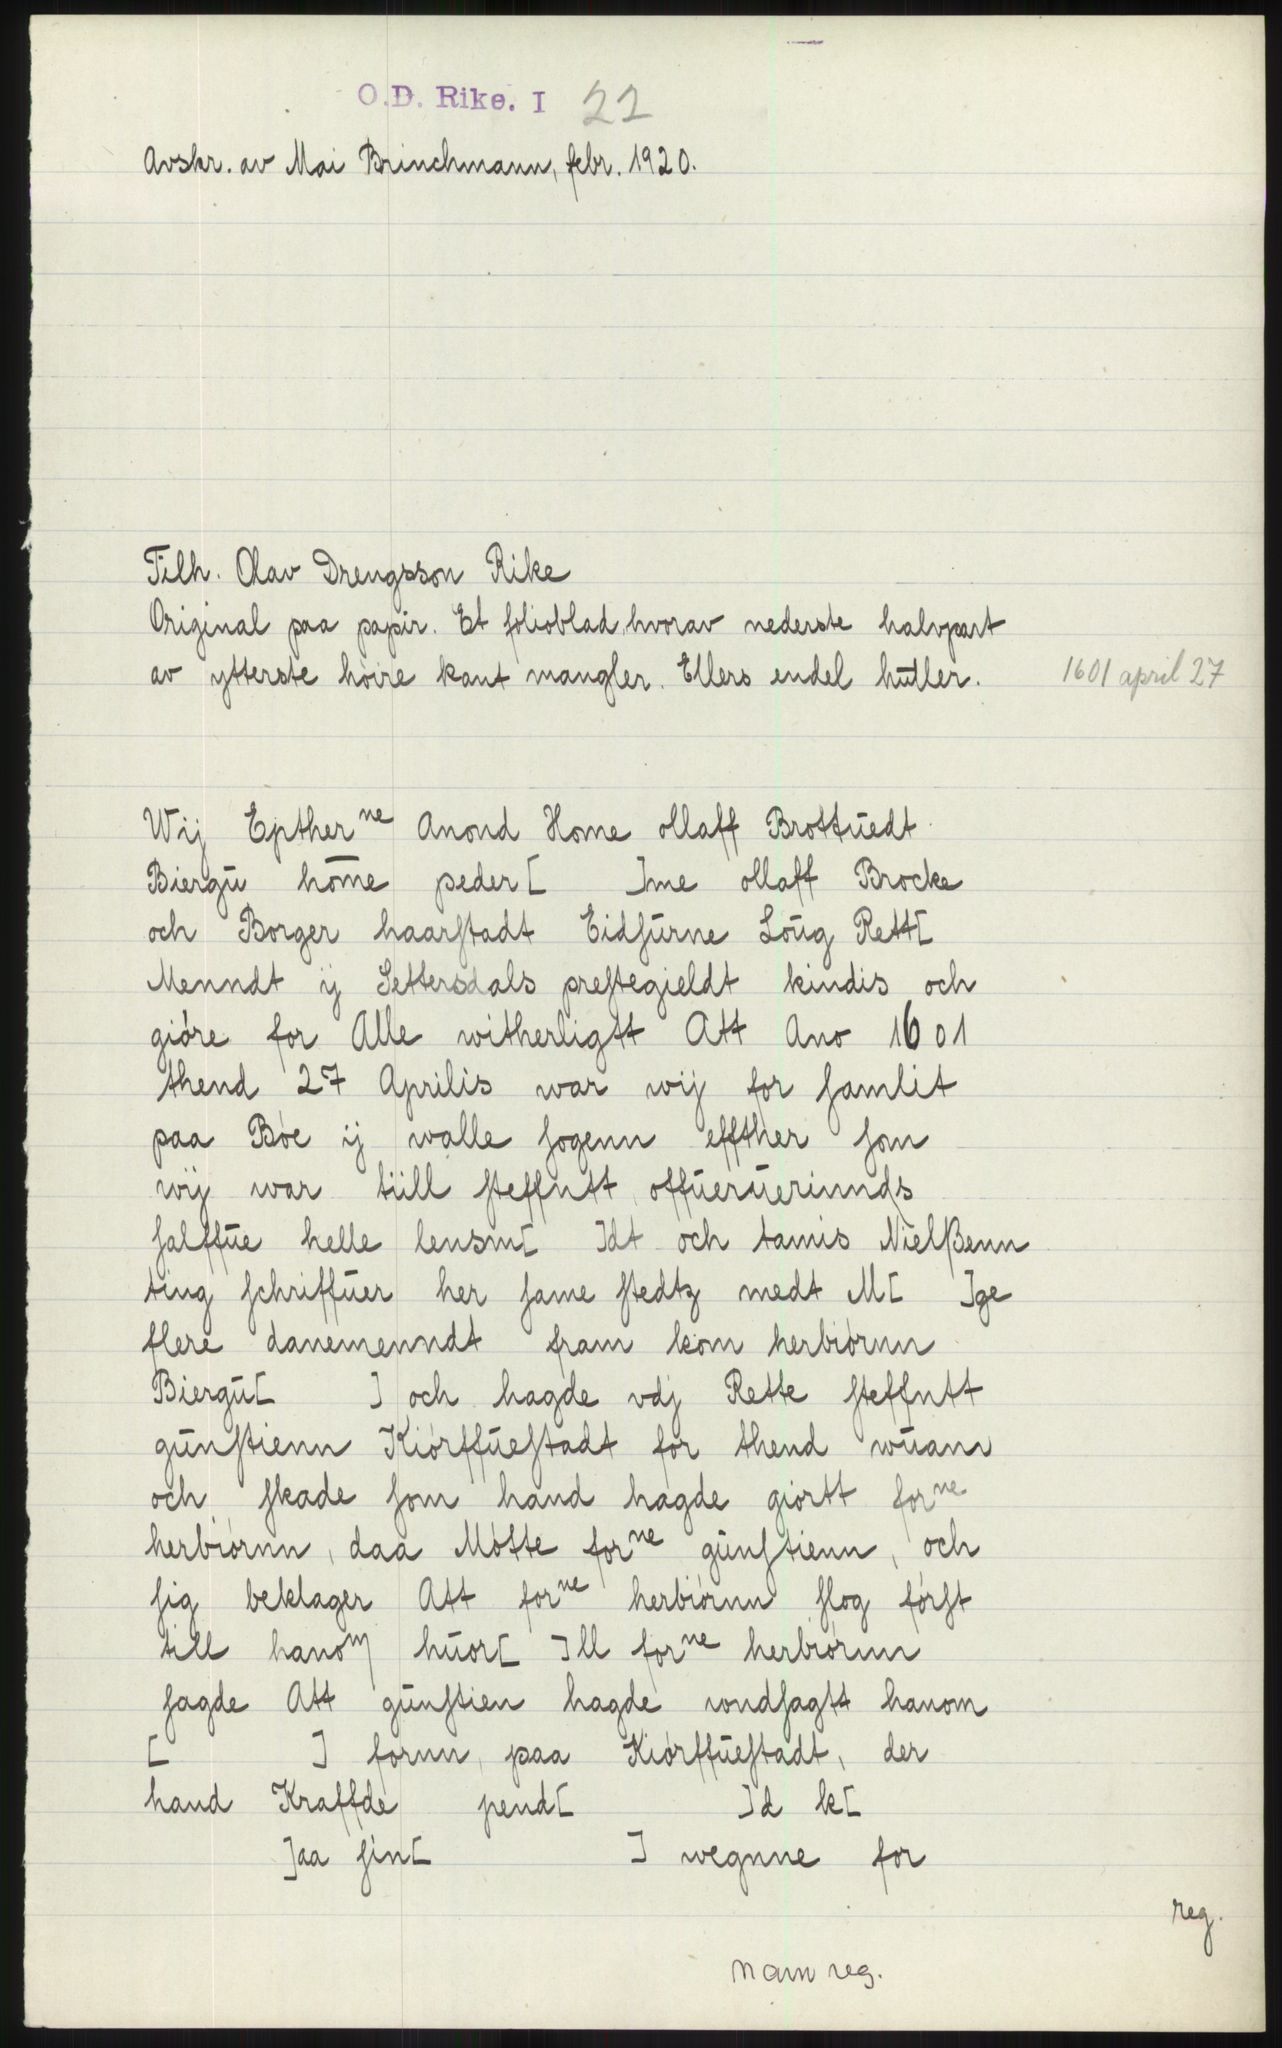 O.D. Rike. I 22
Avskr. av Mai Brinchmann, febr. 1920.
Tilh. Olav Drengsson Rike
Original paa papir. Et folioblad, hvorav nederste halvpart
av ytterste høire kant mangler. Ellers endel huller.
1601 april 27
Wij Epther ne Anond Home ollaff Brottuedt
Biergu home peder [ ]me ollaff Brocke
och Borger haarstadt Eidsurne Loug Rett[
Menndt ij Settersdals prestegieldt kindis och
giöre for Alle witherligtt Att Ano 1601
thend 27 Aprilis war wij for samlit
paa Böe ij walle sogenn effther som
wij war tiill steffntt offueruerinnds
salffue helle lensm[ ]dt och tamis Nielßenn
ting schriffuer her same stedtz medt M[ ]ge
flere danemenndt fram kom herbiörnn
Biergu[ ] och hagde vdj Rette steffntt
gunstienn Kiörffuestadt for thend wuann
och skade som hand hagde giortt forne
herbiörnn, daa Mötte forne gunstienn, och
sig beklager Att forne herbiörnn slog först
till hanom huor[ ]ll forne herbiörnn
sagde Att gunstien hagde wondsagtt hanom
[ ] fornn, paa Kiörffuestadt, der
hand Kraffde pend[ ]d k[
]aa sin[ ] wegnne for
reg.
nam reg.